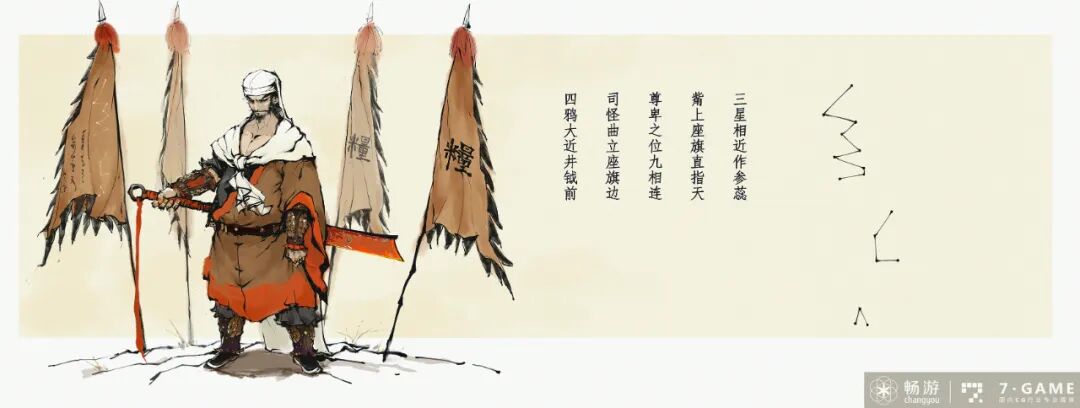 三星相近作参蕊
觜上座旗直指天
尊卑之位九相连
司怪曲立座旗边
四鸦大近井钺前
糧
糧
畅游
changyou
7·GAME